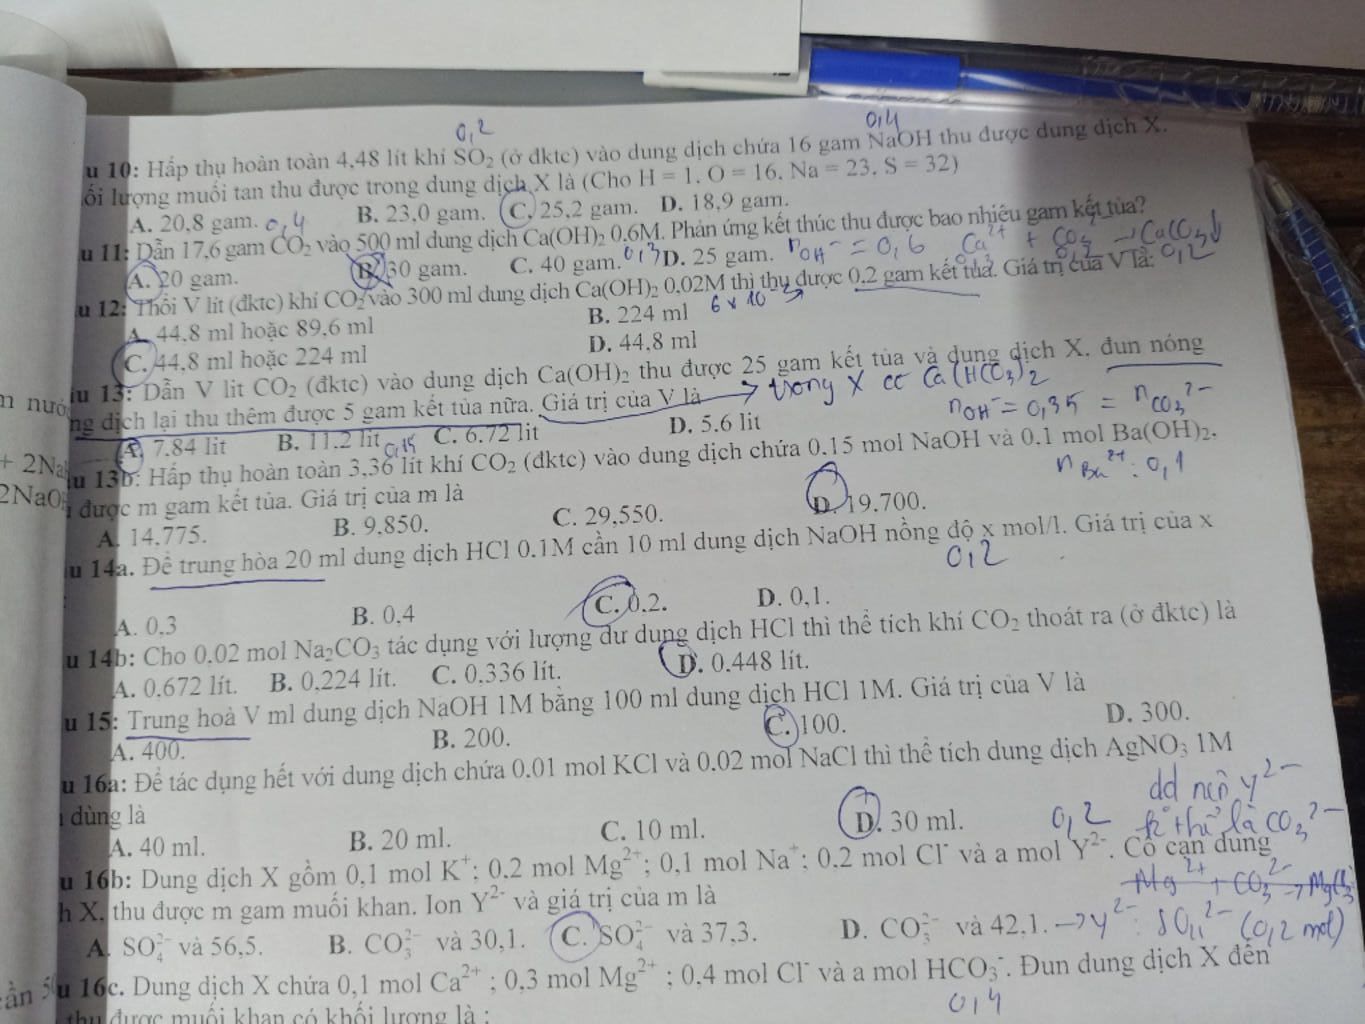 0,2
0,4
u 10: Hấp thụ hoàn toàn 4,48 lít khí SO₂ (ở đktc) vào dung dịch chứa 16 gam NaOH thu được dung dịch X.
ối lượng muối tan thu được trong dung dịch X là (Cho H = 1, O = 16, Na = 23, S = 32)
A. 20,8 gam. B. 23,0 gam. C. 25,2 gam. D. 18,9 gam.
0,4
u 11: Dẫn 17,6 gam CO₂ vào 500 ml dung dịch Ca(OH)₂ 0,6M. Phản ứng kết thúc thu được bao nhiêu gam kết tủa?
A. 20 gam. B. 30 gam. C. 40 gam. 0,3 D. 25 gam. nOH⁻ = 0,6 Ca²⁺ + CO₃²⁻ → CaCO₃↓
0,3 0,2 0,2
u 12: Thổi V lít (đktc) khí CO₂ vào 300 ml dung dịch Ca(OH)₂ 0,02M thì thu được 0,2 gam kết tủa. Giá trị của V là:
A. 44,8 ml hoặc 89,6 ml B. 224 ml 6 x 10⁻³
C. 44,8 ml hoặc 224 ml D. 44,8 ml
u 13: Dẫn V lit CO₂ (đktc) vào dung dịch Ca(OH)₂ thu được 25 gam kết tủa và dung dịch X, đun nóng
ng dịch lại thu thêm được 5 gam kết tủa nữa. Giá trị của V là → trong X có Ca(HCO₃)₂
A. 7,84 lit B. 11,2 lit C. 6,72 lit D. 5,6 lit
nOH⁻ = 0,35 = nCO₃²⁻
0,15
u 13b: Hấp thụ hoàn toàn 3,36 lít khí CO₂ (đktc) vào dung dịch chứa 0,15 mol NaOH và 0,1 mol Ba(OH)₂,
được m gam kết tủa. Giá trị của m là nBa²⁺: 0,1
A. 14,775. B. 9,850. C. 29,550. D. 19,700.
u 14a. Để trung hòa 20 ml dung dịch HCl 0.1M cần 10 ml dung dịch NaOH nồng độ x mol/l. Giá trị của x
0,2
A. 0,3 B. 0,4 C. 0,2. D. 0,1.
u 14b: Cho 0,02 mol Na₂CO₃ tác dụng với lượng dư dung dịch HCl thì thể tích khí CO₂ thoát ra (ở đktc) là
A. 0,672 lít. B. 0,224 lít. C. 0,336 lít. D. 0,448 lít.
u 15: Trung hoà V ml dung dịch NaOH 1M bằng 100 ml dung dịch HCl 1M. Giá trị của V là
A. 400. B. 200. C. 100. D. 300.
u 16a: Để tác dụng hết với dung dịch chứa 0,01 mol KCl và 0,02 mol NaCl thì thể tích dung dịch AgNO₃ 1M
dùng là
A. 40 ml. B. 20 ml. C. 10 ml. D. 30 ml.
0,2
Y²⁻
là CO₃²⁻
u 16b: Dung dịch X gồm 0,1 mol K⁺; 0,2 mol Mg²⁺; 0,1 mol Na⁺; 0,2 mol Cl⁻ và a mol Y²⁻. Cô cạn dung
Mg²⁺ + CO₃²⁻ →
h X, thu được m gam muối khan. Ion Y²⁻ và giá trị của m là
A. SO₄²⁻ và 56,5. B. CO₃²⁻ và 30,1. C. SO₄²⁻ và 37,3. D. CO₃²⁻ và 42,1. → Y²⁻: SO₄²⁻ (0,2 mol)
u 16c. Dung dịch X chứa 0,1 mol Ca²⁺ ; 0,3 mol Mg²⁺ ; 0,4 mol Cl⁻ và a mol HCO₃⁻. Đun dung dịch X đến
0,4
thu được muối khan có khối lượng là :